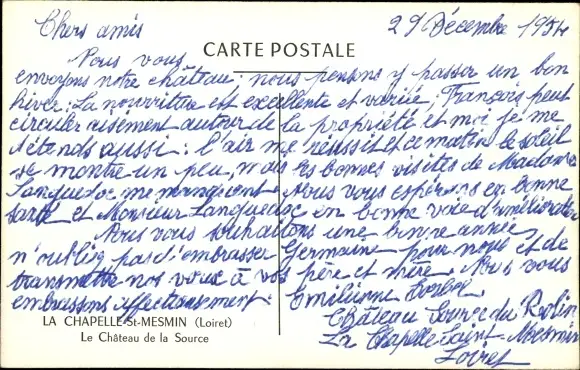 Chers amis
29 Décembre 1954
CARTE POSTALE
Nous vous
envoyons notre château, nous pensons y passer un bon
hiver : La nourriture est excellente et variée, François peut
circuler aisément autour de la propriété et moi je me
détends aussi : l'air me réussit et ce matin le soleil
se montre un peu, mais les bonnes visites de Madame
Languedoc me manquent. Nous vous espérons en bonne
santé et Monsieur Languedoc en bonne voie d'amélioration
Nous vous souhaitons une bonne année,
n'oubliez pas d'embrasser Germaine pour nous et de
transmettre nos vœux à vos père et mère. Nous vous
embrassons affectueusement.
Emilienne
Château Source du Rollin
La Chapelle Saint-Mesmin
Loiret
LA CHAPELLE-St-MESMIN (Loiret)
Le Château de la Source